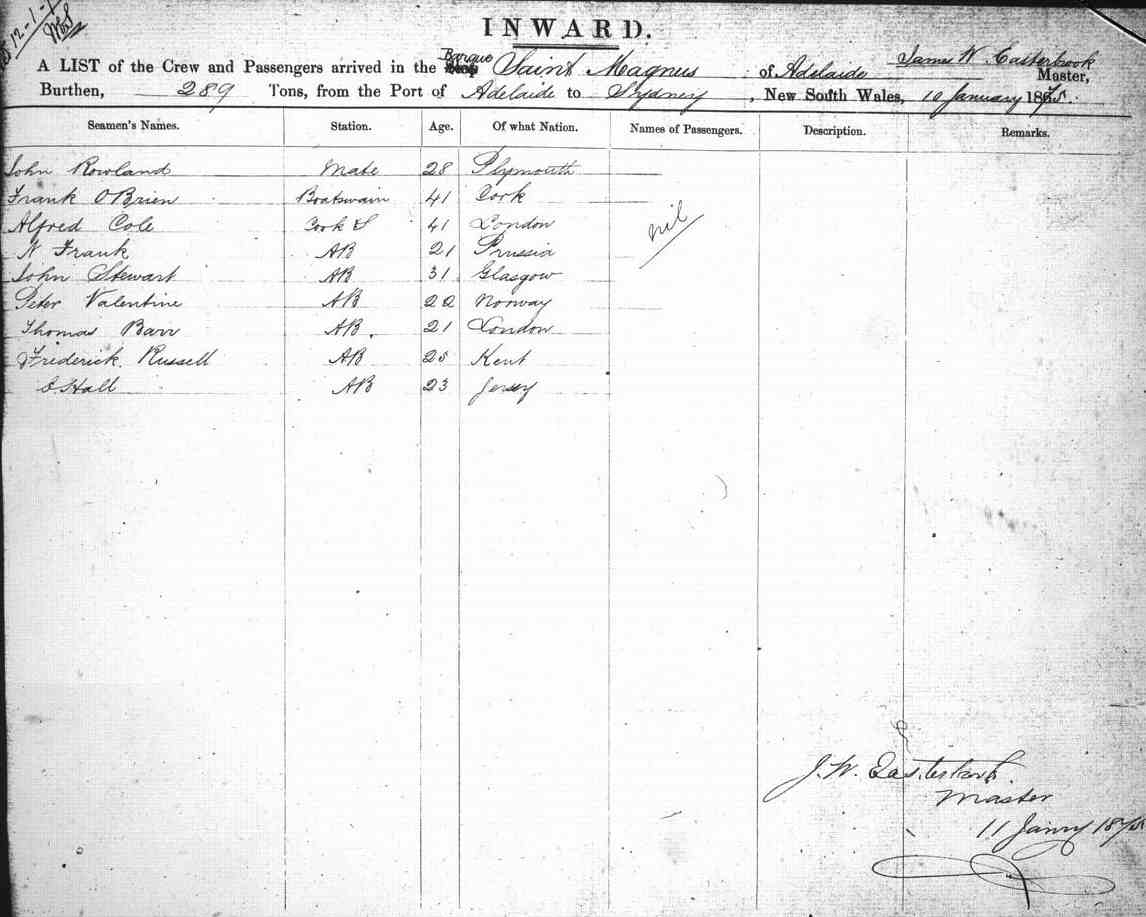 12-1-
INWARD.
A LIST of the Crew and Passengers arrived in the Barque Saint Magnus of Adelaide James W. Easterbrook Master,
Burthen, 289 Tons, from the Port of Adelaide to Sydney, New South Wales, 10 January 1875.
Seamen's Names. Station. Age. Of what Nation. Names of Passengers. Description. Remarks.
John Rowland Mate 28 Plymouth
Frank OBrien Boatswain 41 Cork
Alfred Cole Cook & S 41 London nil
N Frank AB 21 Prussia
John Stewart AB 31 Glasgow
Peter Valentine AB 22 Norway
Thomas Barr AB. 21 London
Frederick Russell AB 25 Kent
Hall AB 23 Jersey
J. W. Easterbrook
Master
11 Janry 1875